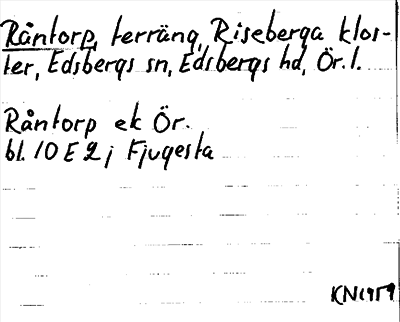 Råntorp, terräng, Riseberga klos-
ter, Edsbergs sn, Edsbergs hd, Ör. l.
Råntorp ek Ör.
bl. 10 E 2 j Fjugesta
KN1959